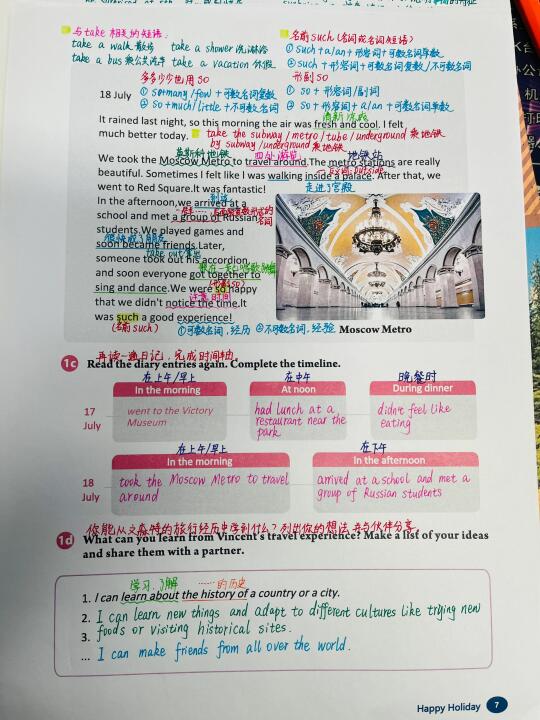 与take相关的短语.
take a walk 散步 take a shower 洗淋浴
take a bus 乘公共汽车 take a vacation 休假
名前such (名词或名词短语)
①such+a/an+形容词+可数名词单数
②such+形容词+可数名词复数/不可数名词
多多少少也用so
① so+many/few+可数名词复数
② so+much/little+不可数名词
形副so
① so+形容词/副词
② so+形容词+a/an+可数名词单数
18 July
清新 凉爽
It rained last night, so this morning the air was fresh and cool. I felt
much better today. take the subway/metro/tube/underground 乘地铁
by subway/underground 乘地铁
莫斯科地铁 四处游览 地铁站
We took the Moscow Metro to travel around.The metro stations are really
反义词: outside
beautiful. Sometimes I felt like I was walking inside a palace. After that, we
走进了宫殿
went to Red Square.It was fantastic!
到达
In the afternoon,we arrived at a
school and met a group of Russian
students.We played games and
很快成了朋友
soon became friends.Later,
take out 拿出
someone took out his accordion,
and soon everyone got together to
sing and dance.We were so happy
(形副so)
that we didn't notice the time.It
注意时间
was such a good experience!
(名前such) ①可数名词,经历 ②不可数名词,经验
Moscow Metro
再读一遍日记,完成时间轴.
1c Read the diary entries again. Complete the timeline.
在上午/早上 在中午 晚餐时
In the morning At noon During dinner
17
July
went to the Victory
Museum
had lunch at a
restaurant near the
park
didn't feel like
eating
在上午/早上 在下午
In the morning In the afternoon
18
July
took the Moscow Metro to travel
around
arrived at a school and met a
group of Russian students
你能从文森特的旅行经历中学到什么?列出你的想法并与伙伴分享
1d What can you learn from Vincent's travel experience? Make a list of your ideas
and share them with a partner.
学习,了解 ……的历史
1. I can learn about the history of a country or a city.
2. I can learn new things and adapt to different cultures like trying new
3. foods or visiting historical sites.
... I can make friends from all over the world.
Happy Holiday 7